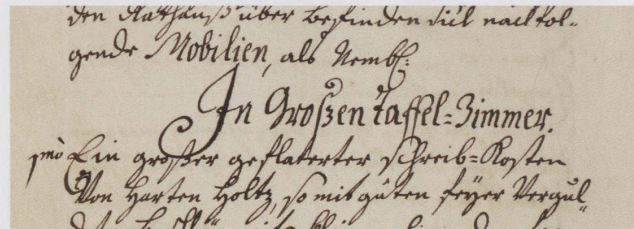 den Rathauß über befinden sich nachfol-
gende Mobilien, als Nembl:
In Großen Taffel-Zimmer.
pmo Ein großer geflaterter schreib-Kosten
Von harten Holtz, so mit guten feyer Vergul-